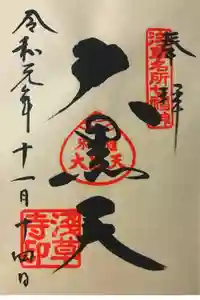 奉拝
大黒天
令和元年十一月十四日
浅草名所七福神
浅草寺印